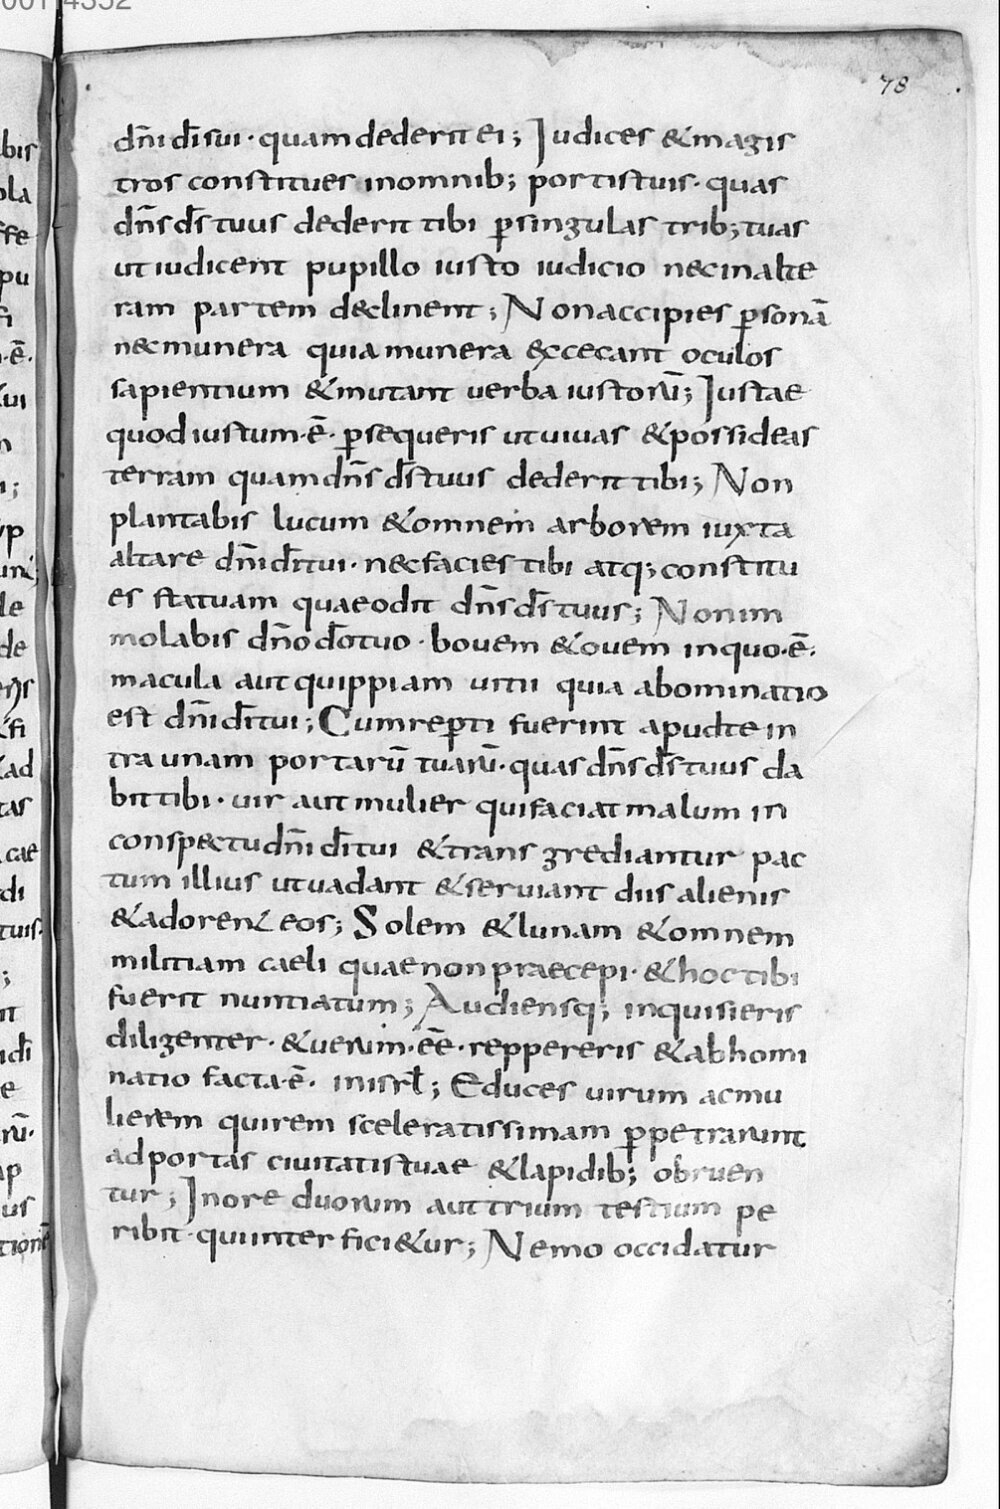 78
dn̄i dī sui · quam dederit ei; Iudices & magis
tros constitues in omnib; portis tuis · quas
dn̄s ds̄ tuus dederit tibi p̱ singulas trib; tuas
ut iudicent pupillo iusto iudicio nec in alte
ram partem declinent; Non accipies p̱sonā
nec munera quia munera excecant oculos
sapientium & mutant uerba iustorū; Iustae
quod iustum · ē · p̱sequeris ut uiuas & possideas
terram quam dn̄s ds̄ tuus dederit tibi; Non
plantabis lucum & omnem arborem iuxta
altare dn̄i dī tui · nec facies tibi atq; constitu
es statuam quae odit dn̄s ds̄ tuus; Non im
molabis dn̄o dō tuo · bouem & ouem in quo · ē ·
macula aut quippiam uitii quia abominatio
est dn̄i dī tui; Cum rep̱ti fuerint apud te in
tra unam portarū tuarū · quas dn̄s ds̄ tuus da
bit tibi · uir aut mulier qui faciat malum in
conspectu dn̄i dī tui & transgrediantur pac
tum illius ut uadant & seruiant diis alienis
& adorent eos; Solem & lunam & omnem
militiam caeli quae non praecepi · & hoc tibi
fuerit nuntiatum; Audiensq; inquisieris
diligenter · & uerum · eē · reppereris & abhomi
natio facta · ē · in isrl̄; Educes uirum ac mu
lierem qui rem sceleratissimam p̱petrarunt
ad portas ciuitatis tuae & lapidib; obruen
tur; In ore duorum aut trium testium pe
ribit · qui interfici&ur; Nemo occidatur